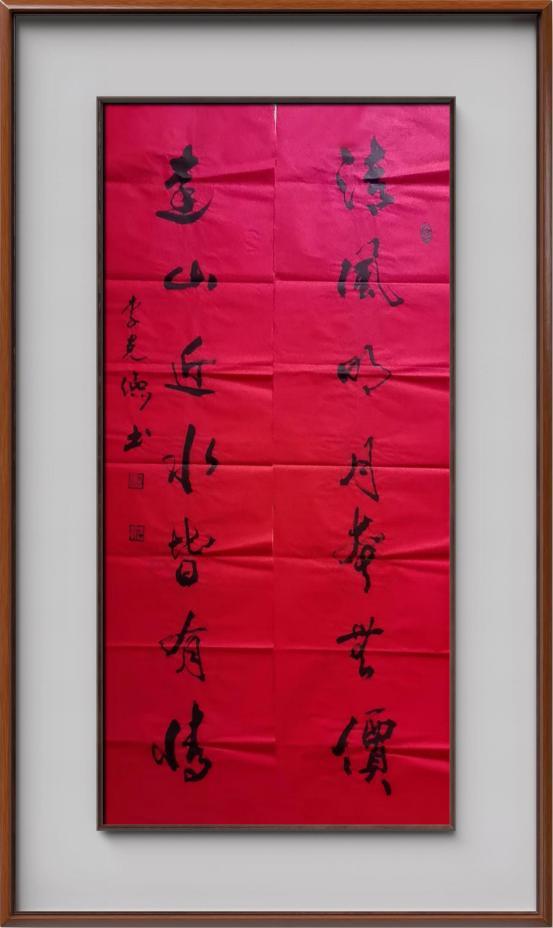 清風明月本無價
遠山近水皆有情
李克儉书